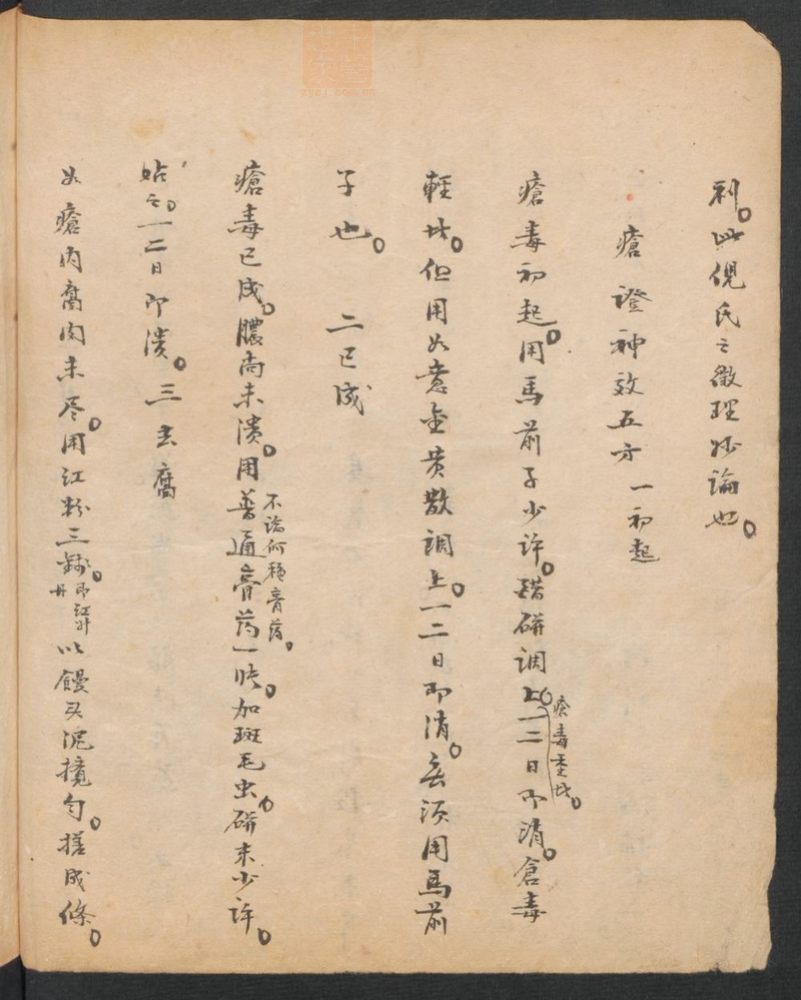 利。此倪氏之微理妙論也。
瘡證神效五方 一初起
瘡毒初起。用馬前子少許。醋研調上。一二日即消。倉毒
瘡毒重此。
輕此。但用如意金黄散調上。一二日即消。無须用馬前
子也。 二已成
瘡毒已成。膿尚未潰。用普通膏药一帖。加斑毛虫。研末少许。
不論何種膏药。
帖之。一二日即潰。三去腐
如瘡内腐肉未尽。用红粉三錢。即红升丹 以饅头泥搗匀。搓成條。